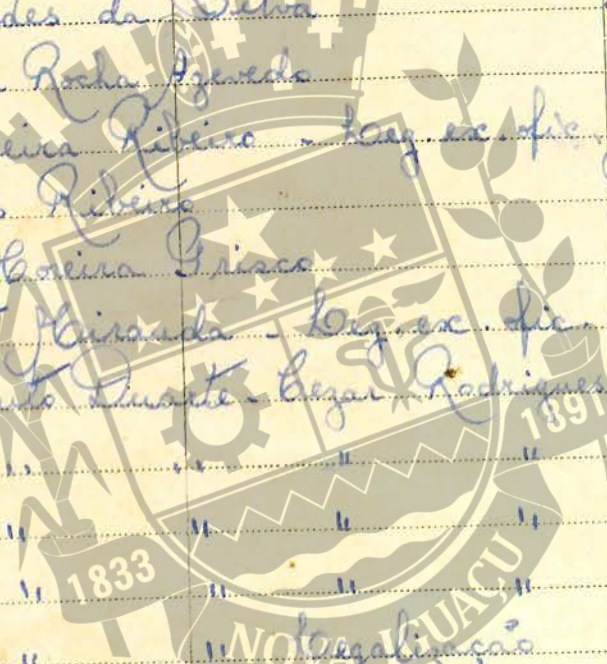 des da Silva
Rocha Azevedo
eira Ribeiro - Leg. ex. ofic.
Ribeiro
Correira Grisco
Miranda - Leg. ex. ofic.
Duarte - Cezar Rodrigues
" " " "
" " " "
" " " "
" " Legalização
1833
1891
NOVA IGUAÇU